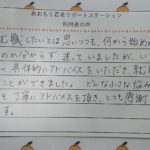 あおもり若者サポートステーション
利用者の声
就職したいとは思いつつも、何から始め
のか分からず迷っていましたが、い
具体的にアドバイスをいただき、就
ことができました。どんな小さな悩み
丁寧にアドバイスを頂き、とても感謝
す。